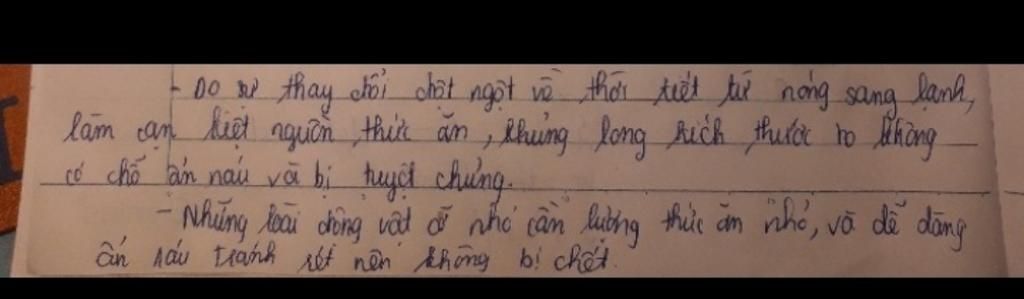 - Do sự thay đổi đột ngột về thời tiết từ nóng sang lạnh,
làm cạn kiệt nguồn thức ăn, khủng long kích thước to không
có chỗ ẩn náu và bị tuyệt chủng.
- Những loài động vật cỡ nhỏ cần lượng thức ăn nhỏ, và dễ dàng
ẩn náu tránh rét nên không bị chết.